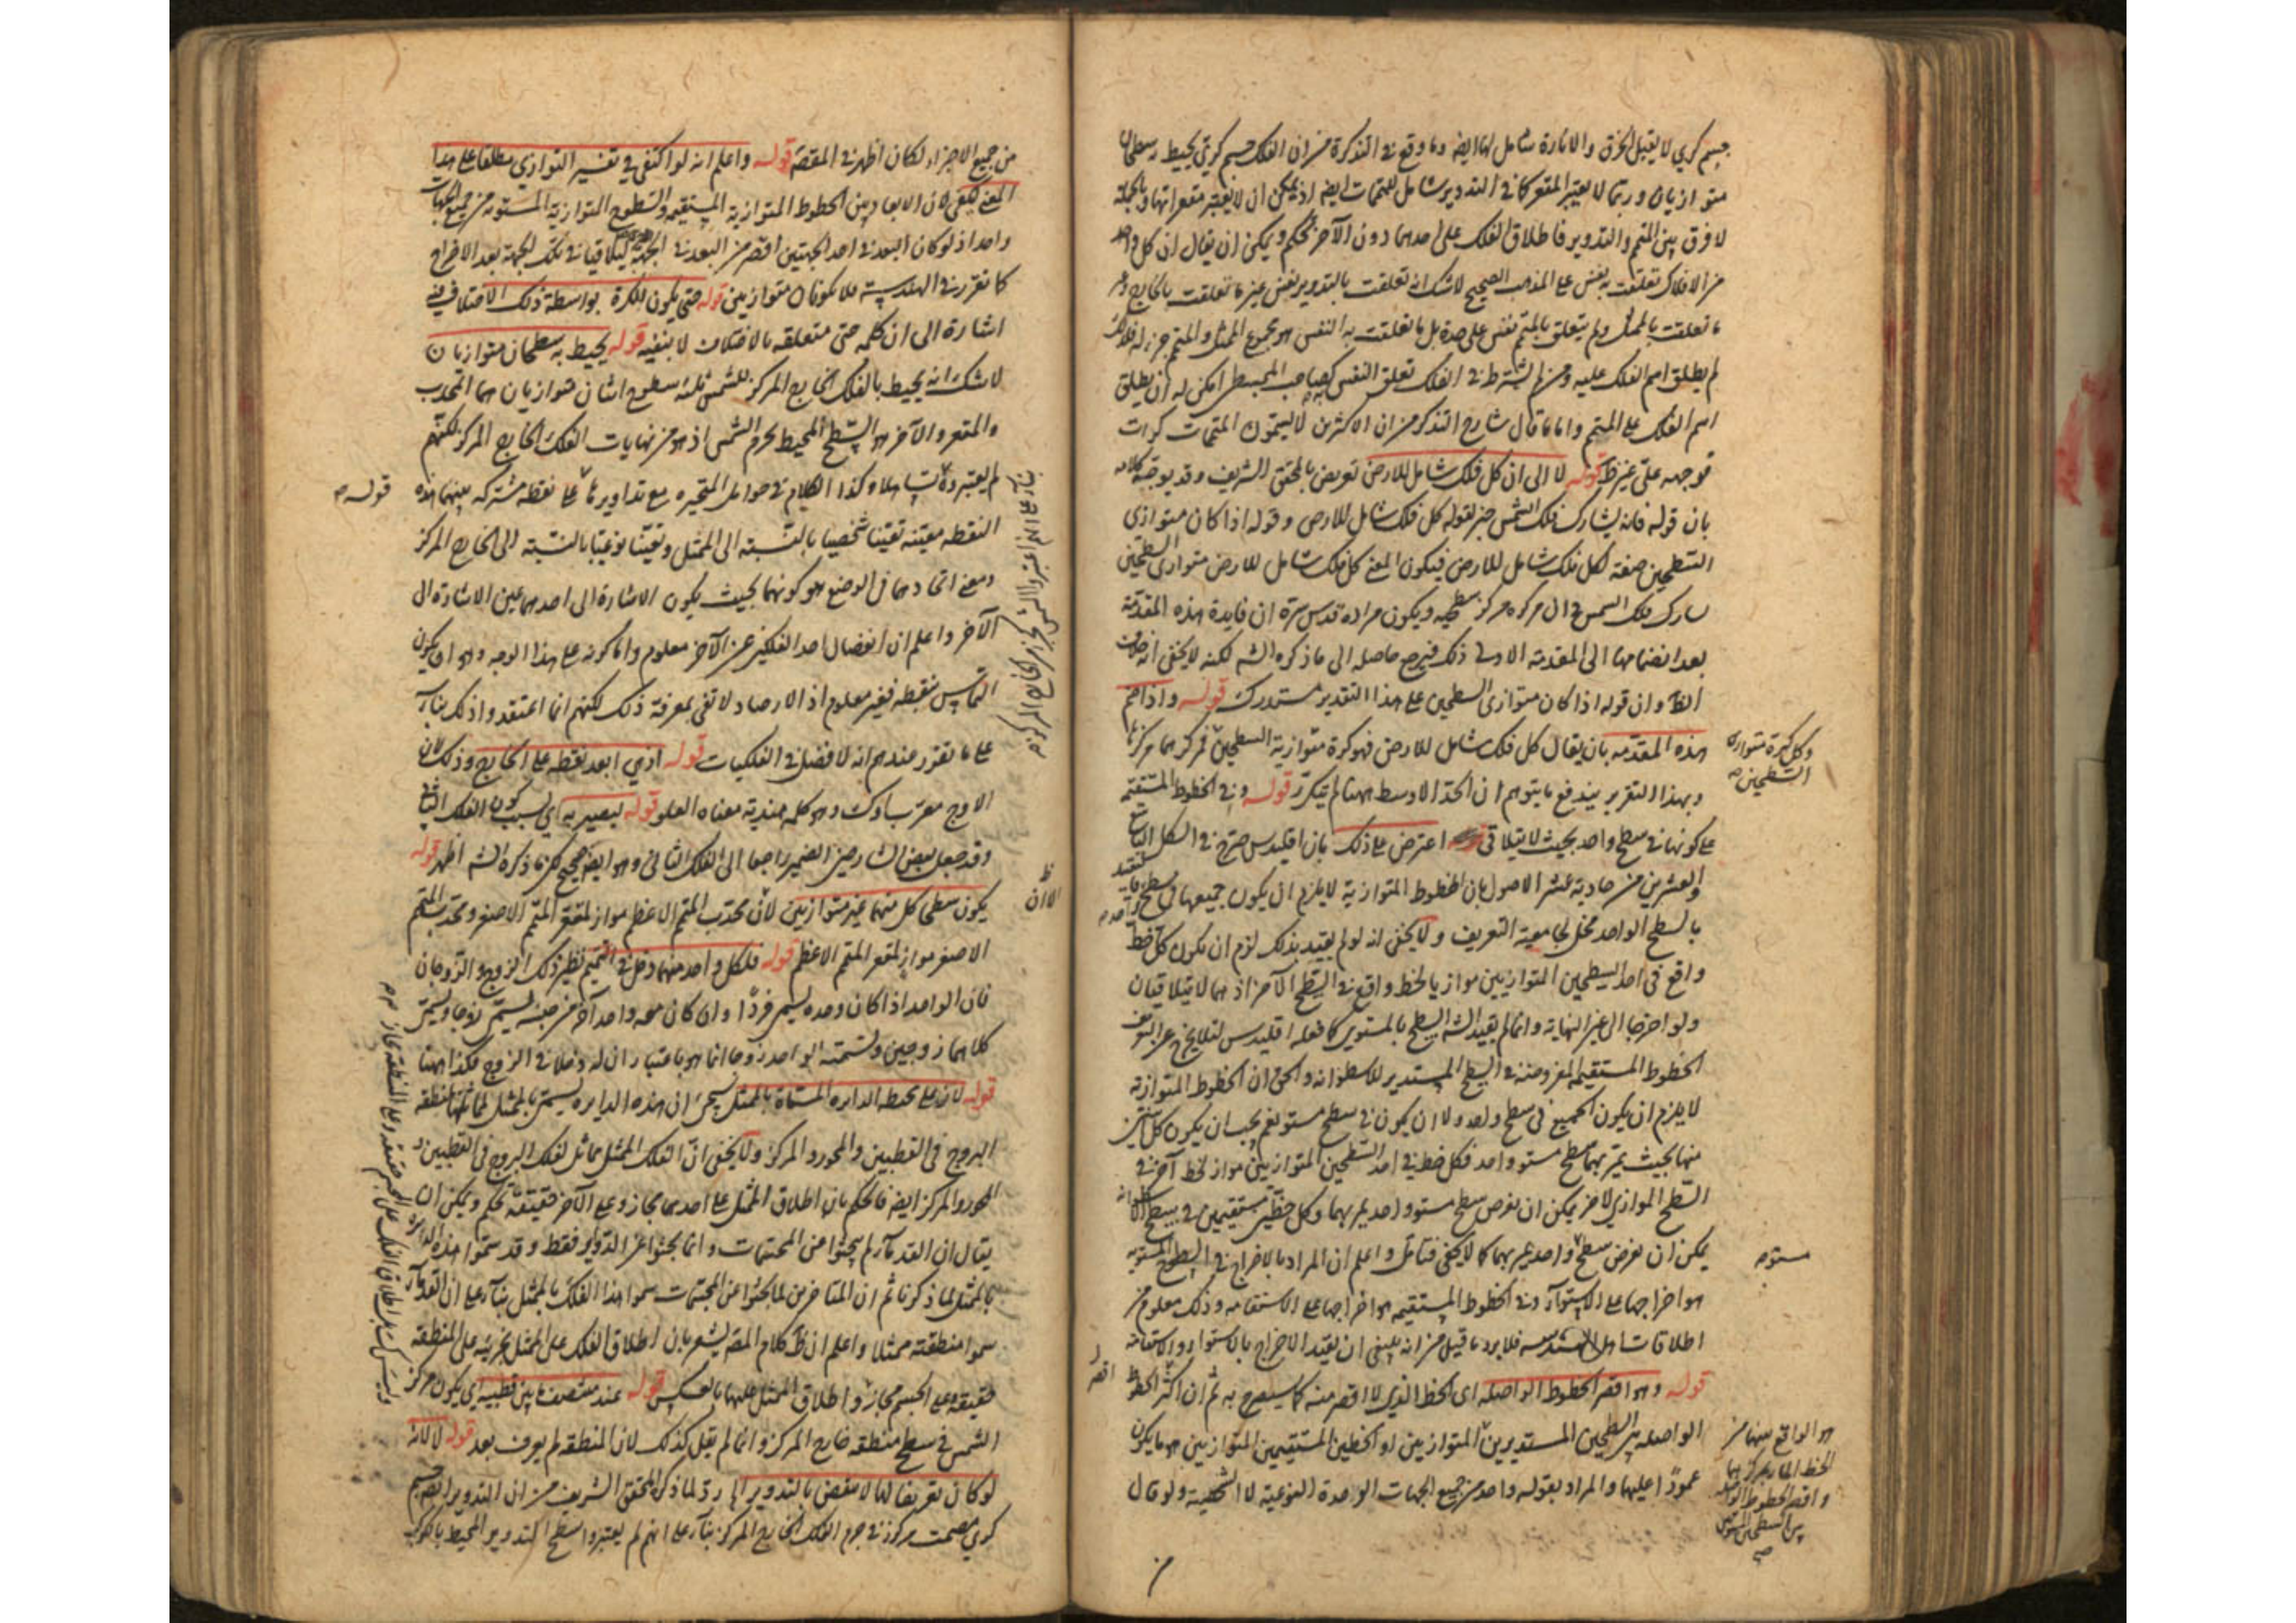 جسم كري لا يقبل الخرق والانارة شامل لها ايضا وما وقع في التذكرة من ان الفلك جسم كري يحيط به سطحان
متوازيان وربما لا يعتبر المقعر كما في التدوير شامل للمتممات ايضا اذ يمكن ان لا يعتبر مقعراتها وبالجملة
لا فرق بين المتمم والتدوير فاطلاق الفلك على احدهما دون الآخر تحكم ويمكن ان يقال ان كل واحد
من الافلاك تعلقت به نفس على المذهب الصحيح لا شك انه تعلقت بالتدوير نفس غير ما تعلقت بالخارج وغير
ما تعلقت بالممثل ولم يتعلق بالمتمم نفس على حدة بل ما تعلقت به النفس هو مجموع الممثل والمتمم جزء له فلذلك
لم يطلق اسم الفلك عليه ومن لم يشترط في الفلك تعلق النفس به كصاحب المجسطي امكن له ان يطلق
اسم الفلك على المتمم واما ما قال شارح التذكرة من ان الاكثرين لا يسمون المتممات كرات
فوجهه على غير ظ قوله لا الى ان كل فلك شامل للارض تعريض بالمحقق الشريف وقد يوجه كلامه
بان قوله فانه يشارك فلك الشمس خبر لقوله كل فلك شامل للارض وقوله اذا كان متوازي
السطحين صفة لكل فلك شامل للارض فيكون المعنى كل فلك شامل للارض متوازي السطحين
يشارك فلك الشمس في ان مركزه مركز سطحيه ويكون مراده قدس سره ان فايدة هذه المقدمة
بعد انضمامها الى المقدمة الاولى ذلك فيرجع حاصله الى ما ذكره الشه لكنه لا يخفى انه خلاف
الظ وان قوله اذا كان متوازي السطحين على هذا التقدير مستدرك قوله واذا ضم
هذه المقدمه بان يقال كل فلك شامل للارض فهو كرة متوازية السطحين فمركزهما مركزها
وبهذا التقرير يندفع ما يتوهم ان الحد الاوسط ههنا لم يتكرر قوله وفي الخطوط المستقيمة
على كونها في سطح واحد بحيث لا يتلاقى اعترض على ذلك بان اقليدس صرح في الشكل التاسع
والعشرين من حادية عشر الاصول بان الخطوط المتوازية لا يلزم ان يكون جميعها في سطح واحد
بالسطح الواحد مخل بجامعية التعريف ولا يخفى انه لو لم يقيد بذلك لزم ان يكون كل خط
واقع في احد السطحين المتوازيين موازيا لخط واقع في السطح الآخر اذ هما لا يتلاقيان
ولو اخرجا الى غير النهاية وانما لم يقيد الشه السطح بالمستوي كما فعله اقليدس لئلا يخرج عن التعريف
الخطوط المستقيمة المفروضة في السطح المستدير للاسطوانه والحق ان الخطوط المتوازية
لا يلزم ان يكون الجميع في سطح واحد ولا ان يكون في سطح مستو نعم يجب ان يكون كل اثنين
منها بحيث يمر بهما سطح مستو واحد فكل خط في احد السطحين المتوازيين مواز لخط آخر في
السطح الموازي لاخر يمكن ان نفرض سطح مستو واحد يمر بهما وكل خطين مستقيمين في بسيط الاسطوانه
يمكن ان نفرض سطح واحد يمر بهما كما لا يخفى فتامل واعلم ان المراد بالاخراج في السطوح المستوية
هو اخراجها على الاستواء وفي الخطوط المستقيمه هو اخراجها على الاستقامه وذلك معلوم من
اطلاقات اهل الهندسه فلا يرد ما قيل من انه ينبغي ان يقيد الاخراج بالاستواء والاستقامه
قوله وهو اقصر الخطوط الواصله اى الخط الذي لا اقصر منه كما سيصرح به ثم ان اكثر الخطوط
الواصله بين السطحين المستديرين المتوازيين او الخطين المستقيمين المتوازيين هو ما يكون
عمودا عليهما والمراد بقوله واحد من جميع الجهات الواحدة النوعية لا الشخصية ولو قال
وكل كرة متوازي
السطحين
مستو
هو الواقع بينهما من
الخط المار بمركزيهما
واقصر الخطوط الواصله
بين السطحين المستويين
من جميع الاجزاء لكان اظهر في المقصد قوله واعلم انه لو اكتفى في تفسير التوازي مطلقا على هذا
المعنى لكفى لان الابعاد بين الخطوط المتوازية المستقيمه والسطوح المتوازية المستويه من جميع الجهات
واحد اذ لو كان البعد في احد الجهتين اقصر من البعد في الجهة ليتلاقيا في تلك الجهة بعد الاخراج
كما تقرر في الهندسية فلا يكونان متوازيين قوله حتى يكون للكرة بواسطة ذلك الاختلاف فيه
اشارة الى ان كلمه حتى متعلقه بالاختلاف لا بنفيه قوله يحيط به سطحان متوازيان
لا شك انه يحيط بالفلك الخارج المركز للشمس ثلثه سطوح اثنان متوازيان هما المحدب
والمقعر والآخر هو السطح المحيط بجرم الشمس اذ هو من نهايات الفلك الخارج المركز لكنهم
لم يعتبروه تساهلا وكذا الكلام في حوامل المتحيره مع تداويرها على نقطه مشتركه بينهما هذه
النقطه معينه تعينا شخصيا بالنسبته الى الممثل وتعينا نوعيا بالنسبته الى الخارج المركز
ومعنى اتحادهما في الوضع هو كونهما بحيث يكون الاشارة الى احدهما عين الاشارة الى
الآخر واعلم ان انفصال احد الفلكين عن الآخر معلوم واما كونه على هذا الوجه وهو ان يكون
التماس بنقطه فغير معلوم اذ الارصاد لا تفي بمعرفة ذلك لكنهم انما اعتقدوا ذلك بناء
على ما تقرر عندهم انه لا فضل في الفلكيات قوله اذ هي ابعد نقطه على الخارج وذلك لان
الاوج معرب اوك وهو كلمه هندية معناه العلو قوله ليصير به اي بسبب كون الفلك الثاني
وقد جعل بعض الشارحين الضمير راجعا الى الفلك الثاني وهو ايضا صحيح لكن ما ذكره الشه اظهر قوله
يكون سطحى كل منهما غير متوازيين لان محدب المتمم الاعظم مواز لمقعر المتمم الاصغر ومحدب المتمم
الاصغر مواز لمقعر المتمم الاعظم قوله فلكل واحد منهما دخل في التتميم نظير ذلك الزوج والزوجان
فان الواحد اذا كان وحده يسمى فردا وان كان معه واحد آخر من جنسه يسمى زوجا ويسمى
كلاهما زوجين وتسميته الواحد زوجا انما هو باعتبار ان له دخلا في الزوج فكذا ههنا
قوله لانه على محيط الدايره المسماة بالممثل سيجئ ان هذه الدايره يسمى بالممثل لمماثلتها منطقه
البروج في القطبين والمحور والمركز ولا يخفى ان الفلك الممثل مماثل لفلك البروج في القطبين و
المحور والمركز ايضا فالحكم بان اطلاق الممثل على احدهما مجاز وعلى الآخر حقيقة تحكم ويمكن ان
يقال ان القدماء لم يبحثوا عن المجسمات وانما بحثوا عن الدواير فقط وقد سموا هذه الدايرة
بالممثل لما ذكرنا ثم ان المتاخرين لما بحثوا عن المجسمات سموا هذا الفلك بالممثل بناء على ان القدماء
سموا منطقته ممثلا واعلم ان ظ كلام المصه يشعر بان اطلاق الفلك على الممثل بجزئيه على المنطقه
حقيقة وعلى الجسم مجاز واطلاق الممثل عليها بالعكس قوله عند منتصف ما بين قطبيه اي يكون مركز
الشمس في سطح منطقه خارج المركز وانما لم يقل كذلك لان المنطقه لم يعرف بعد قوله لا لانه
لو كان تعريفا لها لانتقض بالتدوير الخ رد لما ذكر المحقق الشريف من ان التدوير ايضا جسم
كري مصمت مركوز في جرم الفلك الخارج المركز بناء على انهم لم يعتبروا سطح التدوير المحيط بالكوكب
قوله